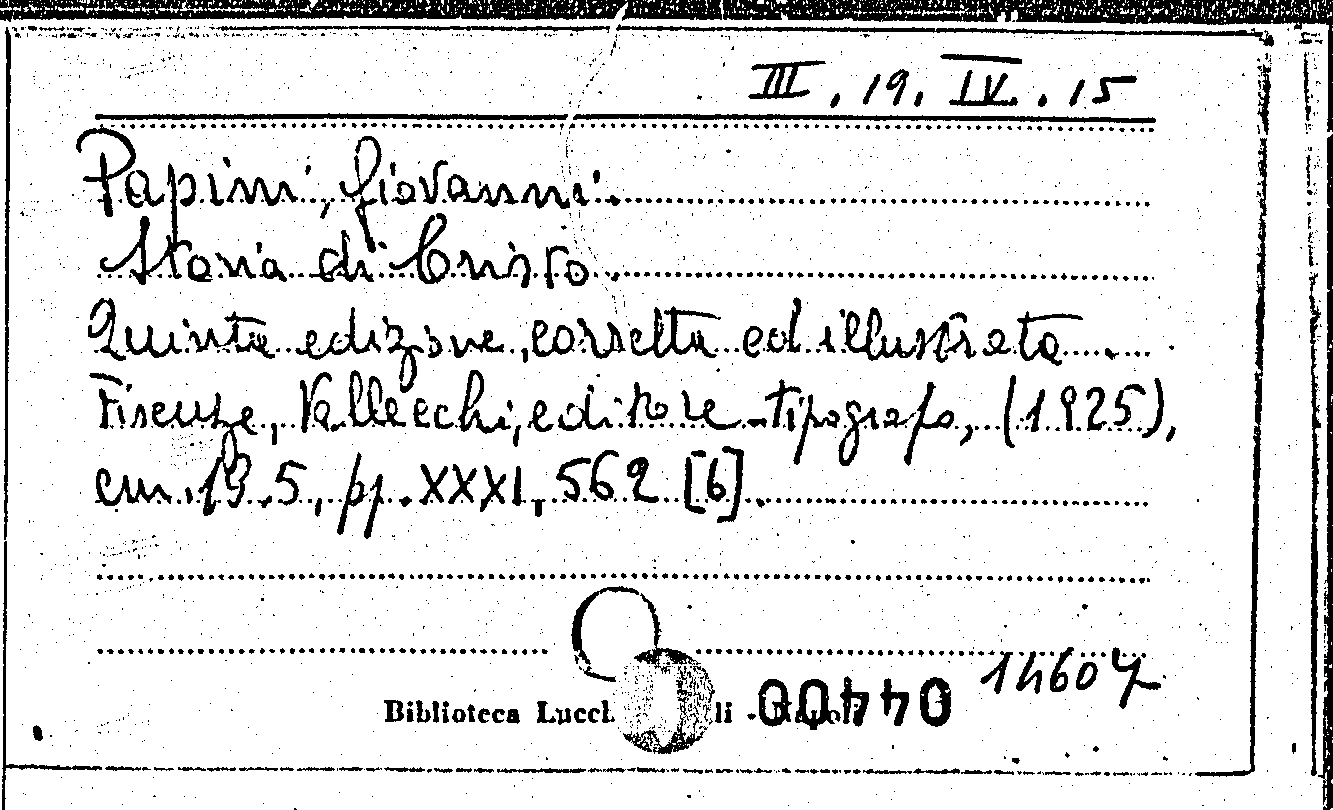 III. 19. IV. 15
Papini, Giovanni.
Storia di Cristo.
Quinta edizione, corretta ed illustrata.
Firenze, Vallecchi, editore-tipografo, (1925),
cm. 19.5, pp. XXXI, 562 [6].
14607
Biblioteca 00440